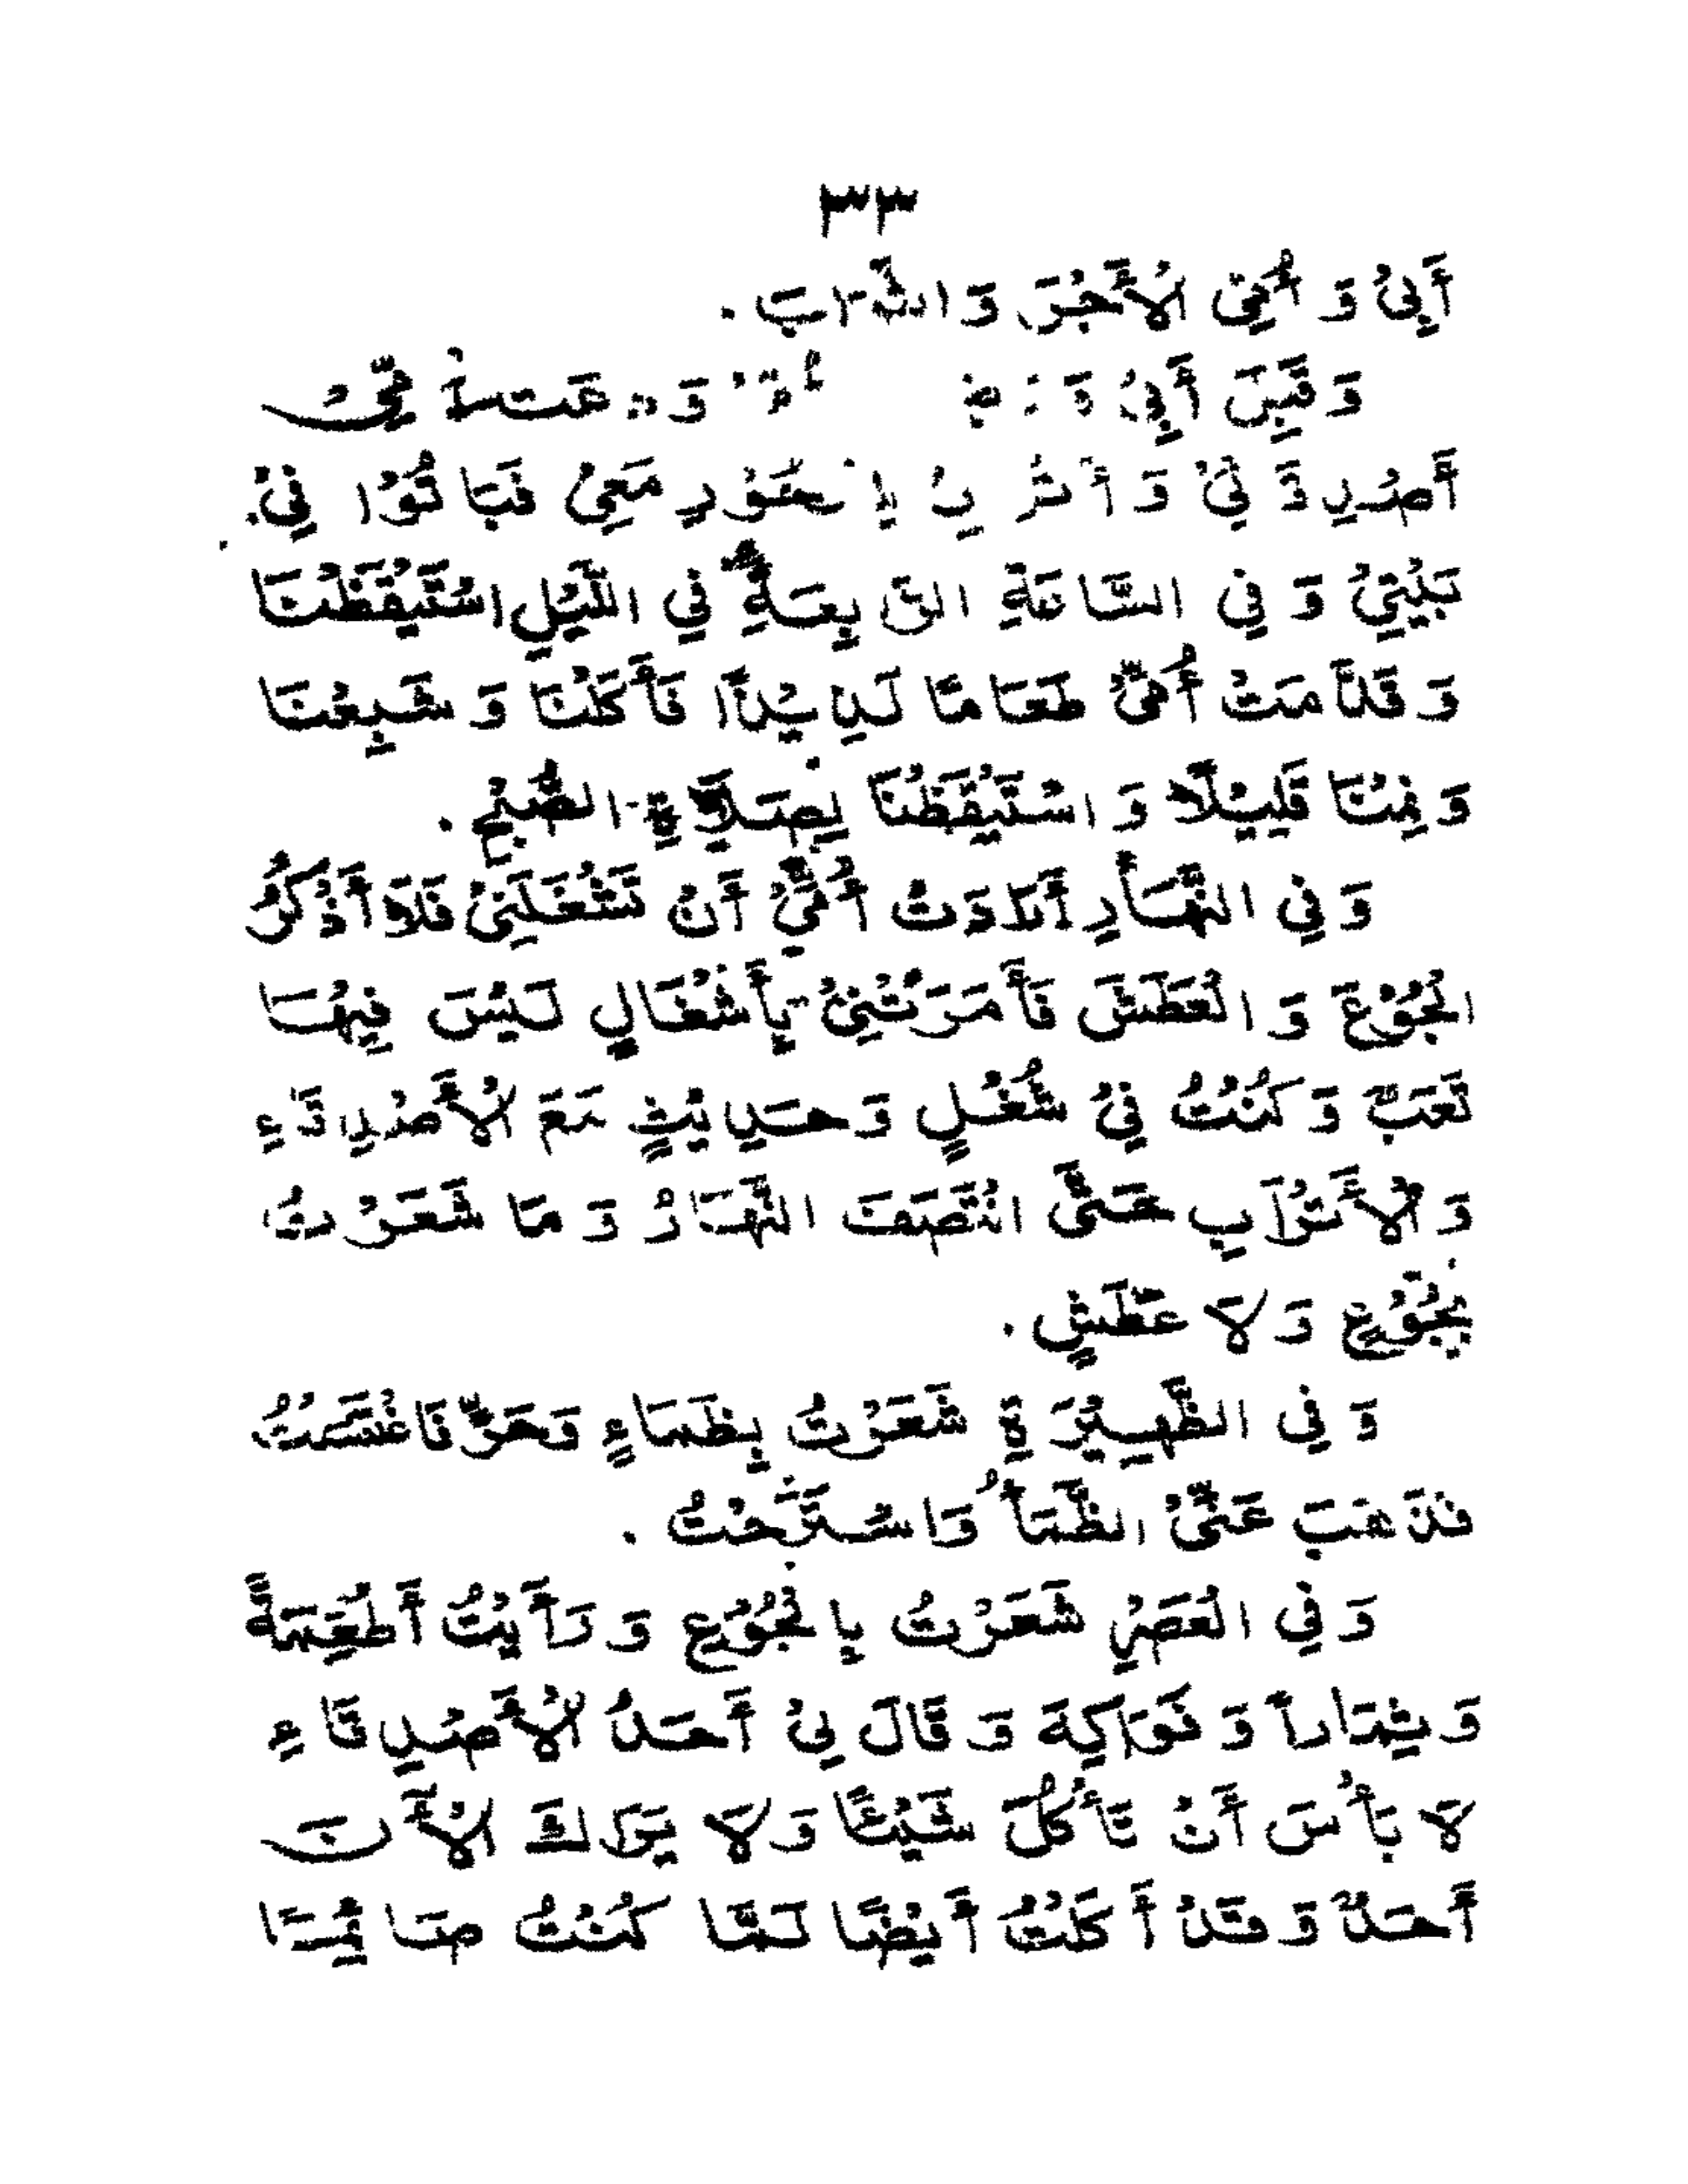 ٣٣
أَبِيْ وَ أُمِّيْ الْأَجْرَ وَ الثَّوَابَ .
وَ قَبِلَ أَبِيْ وَ
أَصْدِقَائِيْ وَ أَتْرَابِيْ لِلسَّحُوْرِ مَعِيْ فَبَاتُوْا فِيْ
بَيْتِيْ وَ فِي السَّاعَةِ الرَّابِعَةِ فِي اللَّيْلِ اسْتَيْقَظْنَا
وَ قَدَّمَتْ أُمِّيْ طَعَامًا لَذِيْذًا فَأَكَلْنَا وَ شَبِعْنَا
وَ نِمْنَا قَلِيْلًا وَ اسْتَيْقَظْنَا لِصَلَاةِ الصُّبْحِ .
وَ فِي النَّهَارِ أَرَادَتْ أُمِّيْ أَنْ تَشْغَلَنِيْ فَلَا أَذْكُرُ
الْجُوْعَ وَ الْعَطَشَ فَأَمَرَتْنِيْ بِأَشْغَالٍ لَيْسَ فِيْهَا
تَعَبٌ وَ كُنْتُ فِيْ شُغْلٍ وَ حَدِيْثٍ مَعَ الْأَصْدِقَاءِ
وَ الْأَتْرَابِ حَتَّى انْتَصَفَ النَّهَارُ وَ مَا شَعَرْتُ
بِجُوْعٍ وَ لَا عَطَشٍ .
وَ فِي الظَّهِيْرَةِ شَعَرْتُ بِظَمَاءٍ وَ حَرٍّ فَاغْتَسَلْتُ
فَذَهَبَ عَنِّيْ الظَّمَأُ وَ اسْتَرَحْتُ .
وَ فِي الْعَصْرِ شَعَرْتُ بِالْجُوْعِ وَ رَأَيْتُ أَطْعِمَةً
وَ ثِمَاراً وَ فَوَاكِهَ وَ قَالَ لِيْ أَحَدُ الْأَصْدِقَاءِ
لَا بَأْسَ أَنْ تَأْكُلَ شَيْئًا وَ لَا يَرَاكَ الْأَنَ
أَحَدٌ وَ قَدْ أَكَلْتُ أَيْضًا لَمَّا كُنْتُ صَائِمًا